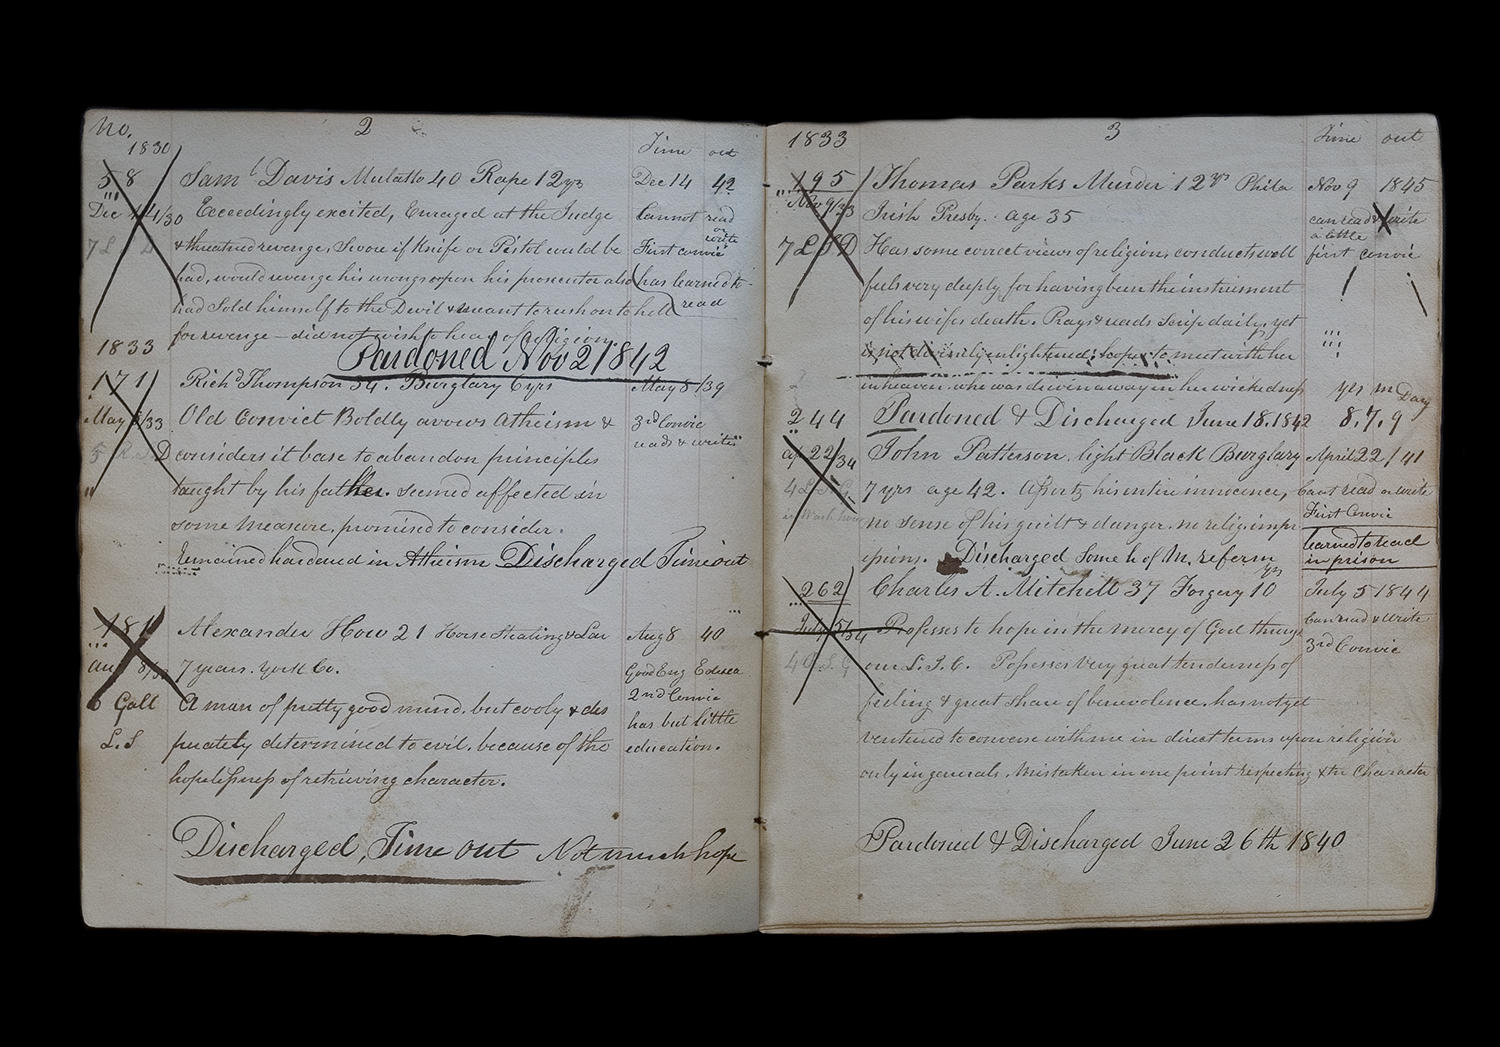 No. 2
1830 Time out
58 Sam<sup>l</sup> Davis Mulatto 40 Rape 12 yrs Dec 14 42
Dec 14/30 Exceedingly excited, Enraged at the Judge Cannot read or write
7 L & threatned revenge, Swore if Knife or Pistol would be First convic
had, would revenge his wrongs upon his prosecutor also has learned to read
had Sold himself to the Devil & meant to rush on to hell
for revenge - did not wish to hear of religion.
1833 Pardoned Nov 2 1842
171 Rich<sup>d</sup> Thompson 34. Burglary 6 yrs May 8/39
May 8/33 Old Convict Boldly avows Atheism & 3rd Convic
5 D considers it base to abandon principles reads & writes
taught by his father. seemed affected in
some measure, promised to consider.
Remained hardened in Atheism Discharged Time out
181 Alexander How 21 Horse Stealing & Lar Aug 8 40
au 8/33 7 years. York Co. Good Eng Educa
6 Gall A man of pretty good mind, but cooly & des 2nd Convic
L. S perately determined to evil, because of the has but little
hopelessness of retrieving character. education.
Discharged, Time out Not much hope
1833 3 Time out
195 Thomas Parks Murder 12 yrs Phila Nov 9 1845
Nov 9/33 Irish Presby. age 35 can read & write a little
7 L S D Has some correct views of religion, conducts well first convic
feels very deeply for having been the instrument
of his wifes death. Prays & reads Scrip daily, yet
is not divinely enlightened; hopes to meet with her
in heaven, who was driven away in her wickedness yrs m Days
244 Pardoned & Discharged June 18. 1842 8. 7. 9
ap 22/34 John Patterson, light Black Burglary April 22/41
4 7 yrs age 42. Asserts his entire innocence, Cant read or write
no sense of his guilt & danger. no relig. impr First Convic
essions. Discharged Some h of M. reform learned to read in prison
262 Charles A. Mitchell 37 Forgery 10 yrs July 5 1844
July 5/34 Professes to hope in the mercy of God through Can read & write
4 our L. J. C. Possesses very great tenderness of 3rd Convic
feeling & great share of benevolence. has not yet
ventured to converse with me in direct terms upon religion
only in generals. Mistaken in one point respecting & the Character
Pardoned & Discharged June 26th 1840